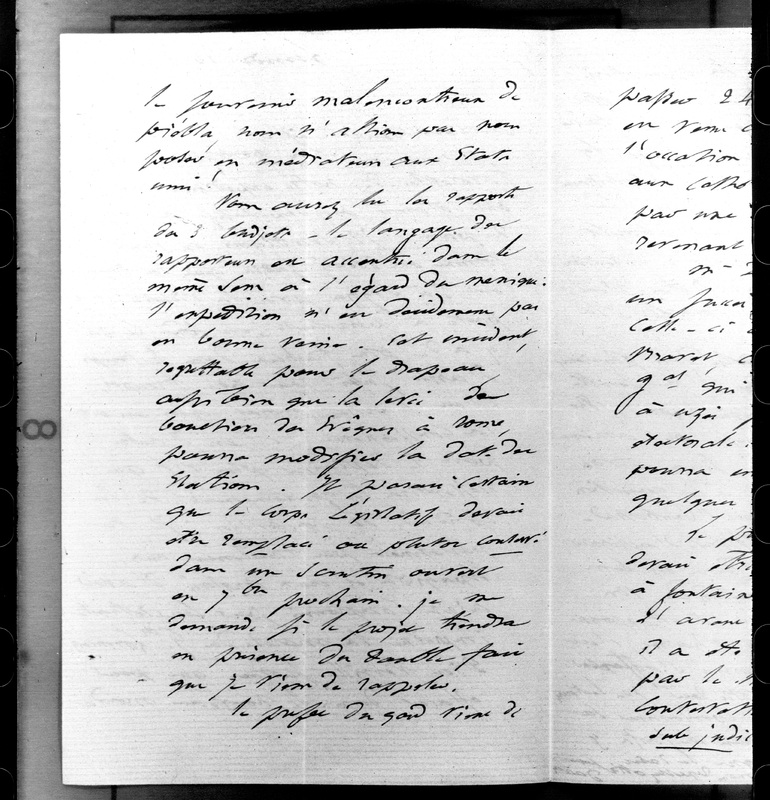 le souvenir malencontreux de
puébla, nous n'allions pas nous
poser en médiateurs aux Etats
unis!
Vous aurez lu les rapports
du budjet - le langage du
rapporteur est accentué dans le
même sens à l'égard du mexique.
l'expédition n'est décidément pas
en bonne veine. Cet incident,
regrettable pour le drapeau,
aussi bien que la levée de
bouclier des Evêques à rome,
pourra modifier la date des
Elections. Il paraît certain
que le Corps Législatif devait
être remplacé ou plutôt
dans un scrutin ouvert
en 7bre prochain. je me
demande si le projet tiendra
en présence du double fait
que je viens de rappeler.
le préfet du gard vient de
passer 24
en venu
l'occasion
aux Catho
par une
revenant
un
Celle-ci

gal qui
à
électorale
pourra en
quelques
Le
devait être
à fontain

il a été
par le

sub judi
8